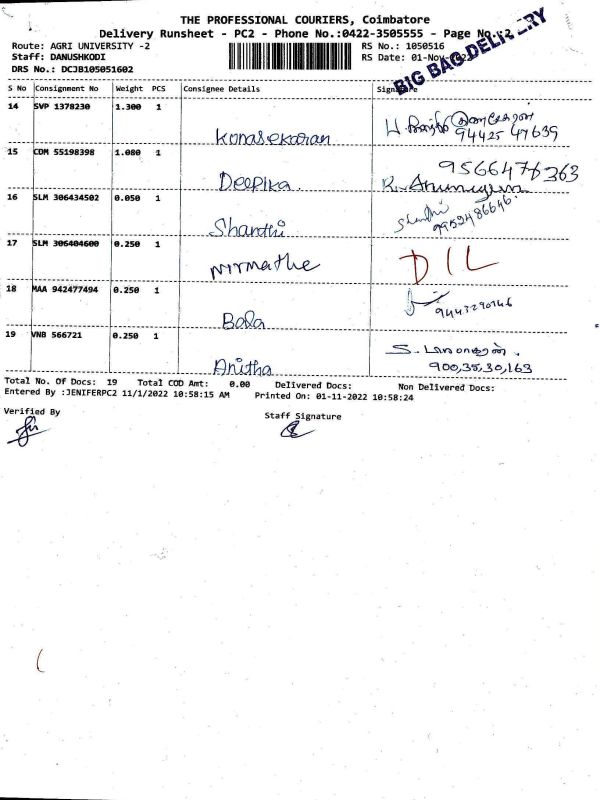 THE PROFESSIONAL COURIERS, Coimbatore
Delivery Runsheet - PC2 - Phone No.:0422-3505555 - Page No.:2
Route: AGRI UNIVERSITY -2 RS No.: 1050516
Staff: DANUSHKODI RS Date: 01-Nov-2022
DRS No.: DCJB105051602
BIG BAG DELIVERY
S No Consignment No Weight PCS Consignee Details
14 SVP 1378230 1.300 1
94425 47639
Konasekaran
15 COM 55198398 1.080 1 9566476363
Deepika
16 SLM 306434502 0.050 1 Shanthi
Shanthi
17 SLM 306404600 0.250 1 DIL
Nirmathe
18 MAA 942477494 0.250 1
Bala
19 VNB 566721 0.250 1
Anitha 900,35,30,163
Total No. Of Docs: 19 Total COD Amt: 0.00 Delivered Docs: Non Delivered Docs:
Entered By :JENIFERPC2 11/1/2022 10:58:15 AM Printed On: 01-11-2022 10:58:24
Verified By Staff Signature